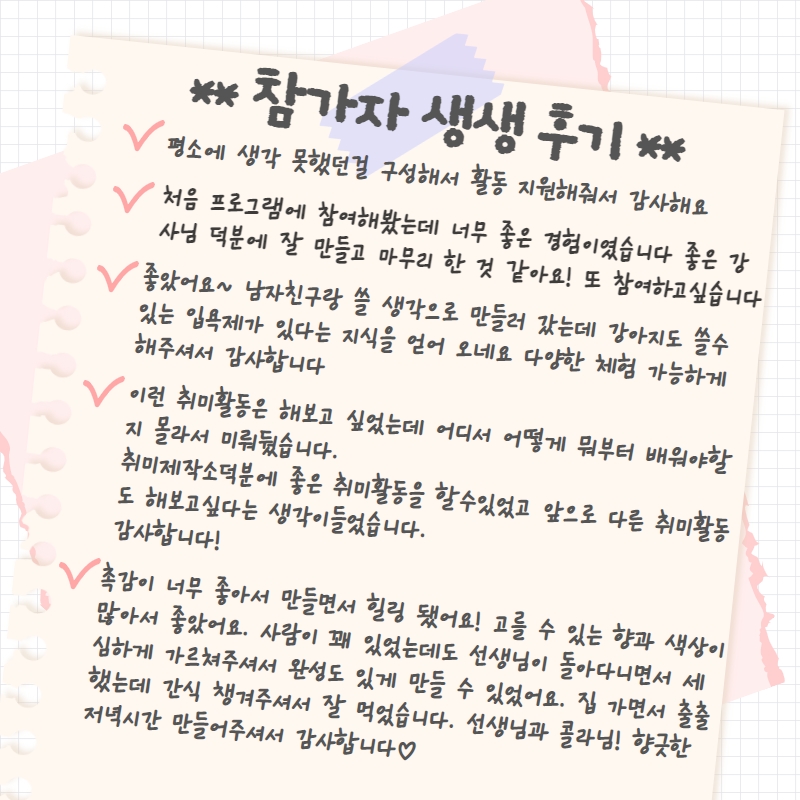 ** 참가자 생생 후기 **
평소에 생각 못했던걸 구성해서 활동 지원해줘서 감사해요
처음 프로그램에 참여해봤는데 너무 좋은 경험이였습니다 좋은 강
사님 덕분에 잘 만들고 마무리 한 것 같아요! 또 참여하고싶습니다
좋았어요~ 남자친구랑 쓸 생각으로 만들러 갔는데 강아지도 쓸수
있는 입욕제가 있다는 지식을 얻어 오네요 다양한 체험 가능하게
해주셔서 감사합니다
이런 취미활동은 해보고 싶었는데 어디서 어떻게 뭐부터 배워야할
지 몰라서 미뤄뒀습니다.
취미제작소덕분에 좋은 취미활동을 할수있었고 앞으로 다른 취미활동
도 해보고싶다는 생각이들었습니다.
감사합니다!
촉감이 너무 좋아서 만들면서 힐링 됐어요! 고를 수 있는 향과 색상이
많아서 좋았어요. 사람이 꽤 있었는데도 선생님이 돌아다니면서 세
심하게 가르쳐주셔서 완성도 있게 만들 수 있었어요. 집 가면서 출출
했는데 간식 챙겨주셔서 잘 먹었습니다. 선생님과 콜라님! 향긋한
저녁시간 만들어주셔서 감사합니다♡